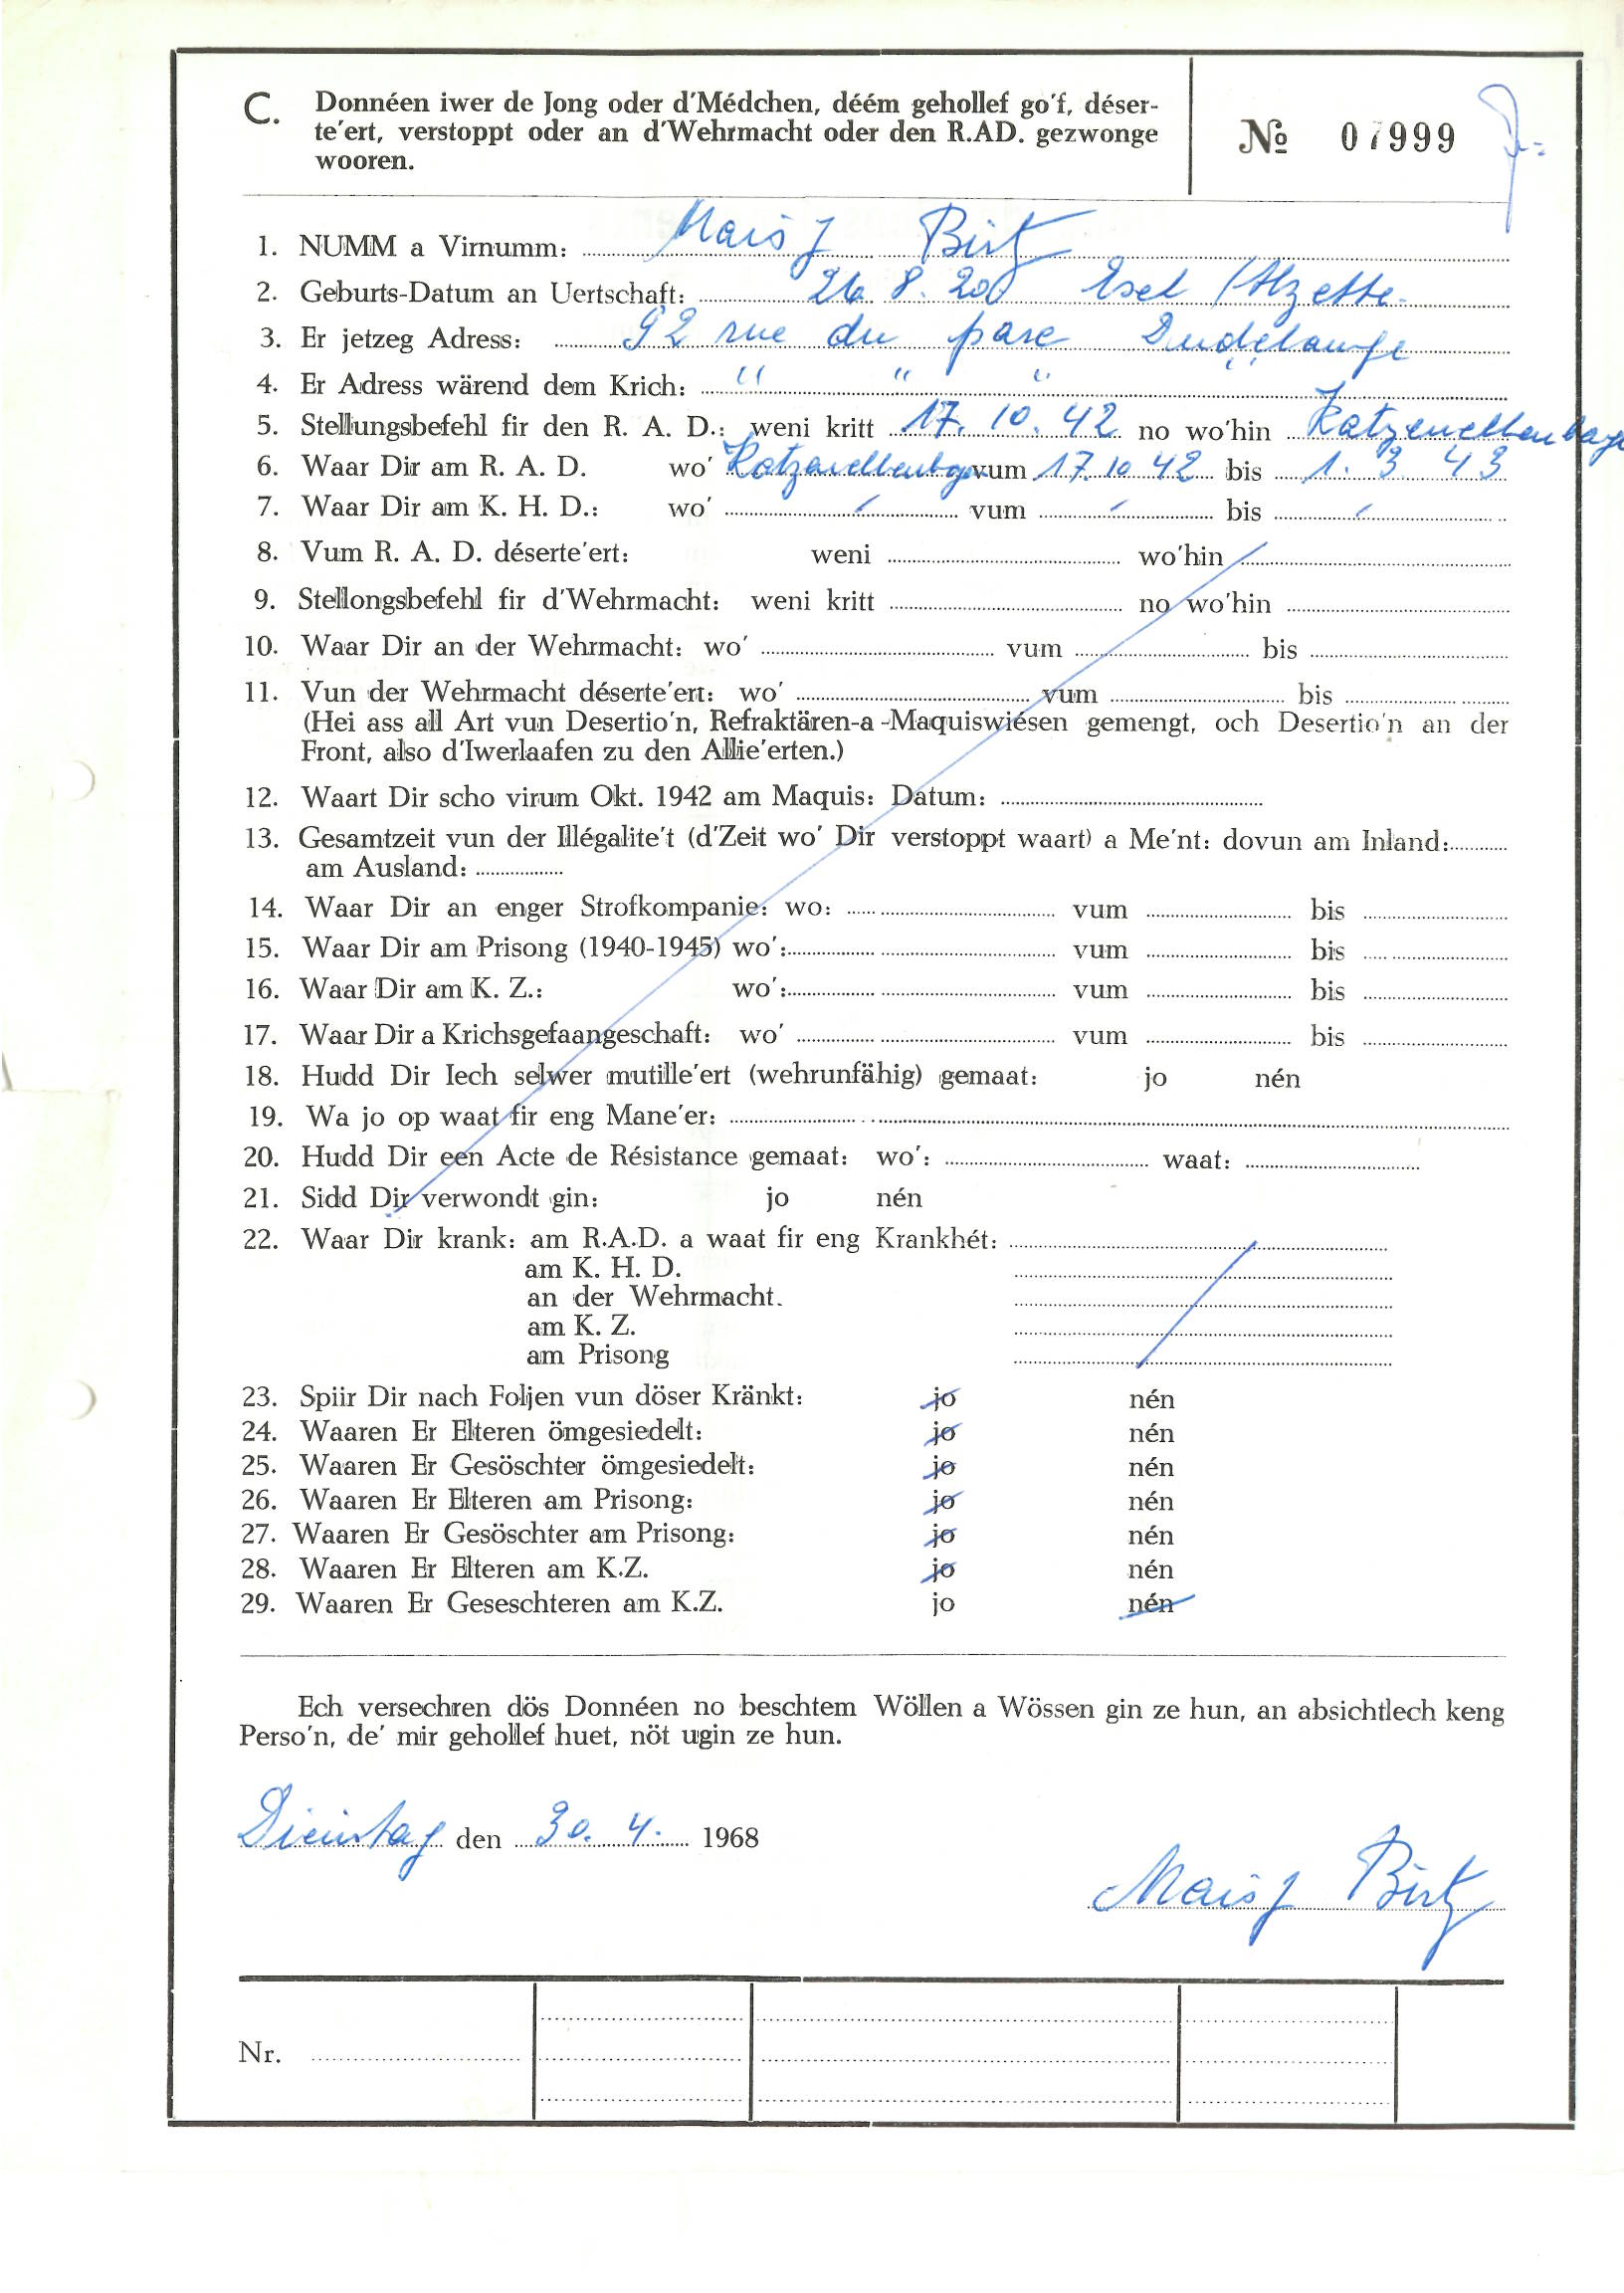 C. Donnéen iwer de Jong oder d'Médchen, déém gehollef go'f, déser-
te'ert, verstoppt oder an d'Wehrmacht oder den R.AD. gezwonge
wooren.
№ 07999
1. NUMM a Virnumm: Maisj Birtz
2. Geburts-Datum an Uertschaft: 26. 8. 20 Esel /Alzette.
3. Er jetzeg Adress: 92 rue du parc Dudelange
4. Er Adress wärend dem Krich: " " "
5. Stellungsbefehl fir den R. A. D.: weni kritt 17. 10. 42 no wo'hin Katzenellenboge
6. Waar Dir am R. A. D. wo' Katzenellenbogen vum 17.10 42 bis 1. 3. 43
7. Waar Dir am K. H. D.: wo' vum bis
8. Vum R. A. D. déserte'ert: weni wo'hin
9. Stellongsbefehl fir d'Wehrmacht: weni kritt no wo'hin
10. Waar Dir an der Wehrmacht: wo' vum bis
11. Vun der Wehrmacht déserte'ert: wo' vum bis
(Hei ass all Art vun Desertio'n, Refraktären-a-Maquiswiésen gemengt, och Desertio'n an der
Front, also d'Iwerlaafen zu den Allie'erten.)
12. Waart Dir scho virum Okt. 1942 am Maquis: Datum:
13. Gesamtzeit vun der Illégalite't (d'Zeit wo' Dir verstoppt waart) a Me'nt: dovun am Inland:
am Ausland:
14. Waar Dir an enger Strofkompanie: wo: vum bis
15. Waar Dir am Prisong (1940-1945) wo': vum bis
16. Waar Dir am K. Z.: wo': vum bis
17. Waar Dir a Krichsgefaangeschaft: wo' vum bis
18. Hudd Dir Iech selwer mutille'ert (wehrunfähig) gemaat: jo nén
19. Wa jo op waat fir eng Mane'er:
20. Hudd Dir een Acte de Résistance gemaat: wo': waat:
21. Sidd Dir verwondt gin: jo nén
22. Waar Dir krank: am R.A.D. a waat fir eng Krankhét:
am K. H. D.
an der Wehrmacht.
am K. Z.
am Prisong
23. Spiir Dir nach Foljen vun döser Kränkt: jo nén
24. Waaren Er Elteren ömgesiedelt: jo nén
25. Waaren Er Gesöschter ömgesiedelt: jo nén
26. Waaren Er Elteren am Prisong: jo nén
27. Waaren Er Gesöschter am Prisong: jo nén
28. Waaren Er Elteren am K.Z. jo nén
29. Waaren Er Geseschteren am K.Z. jo nén
Ech versechren dös Donnéen no beschtem Wöllen a Wössen gin ze hun, an absichtlech keng
Perso'n, de' mir gehollef huet, nöt ugin ze hun.
Dienstag den 30. 4. 1968
Maisj Birtz
Nr.